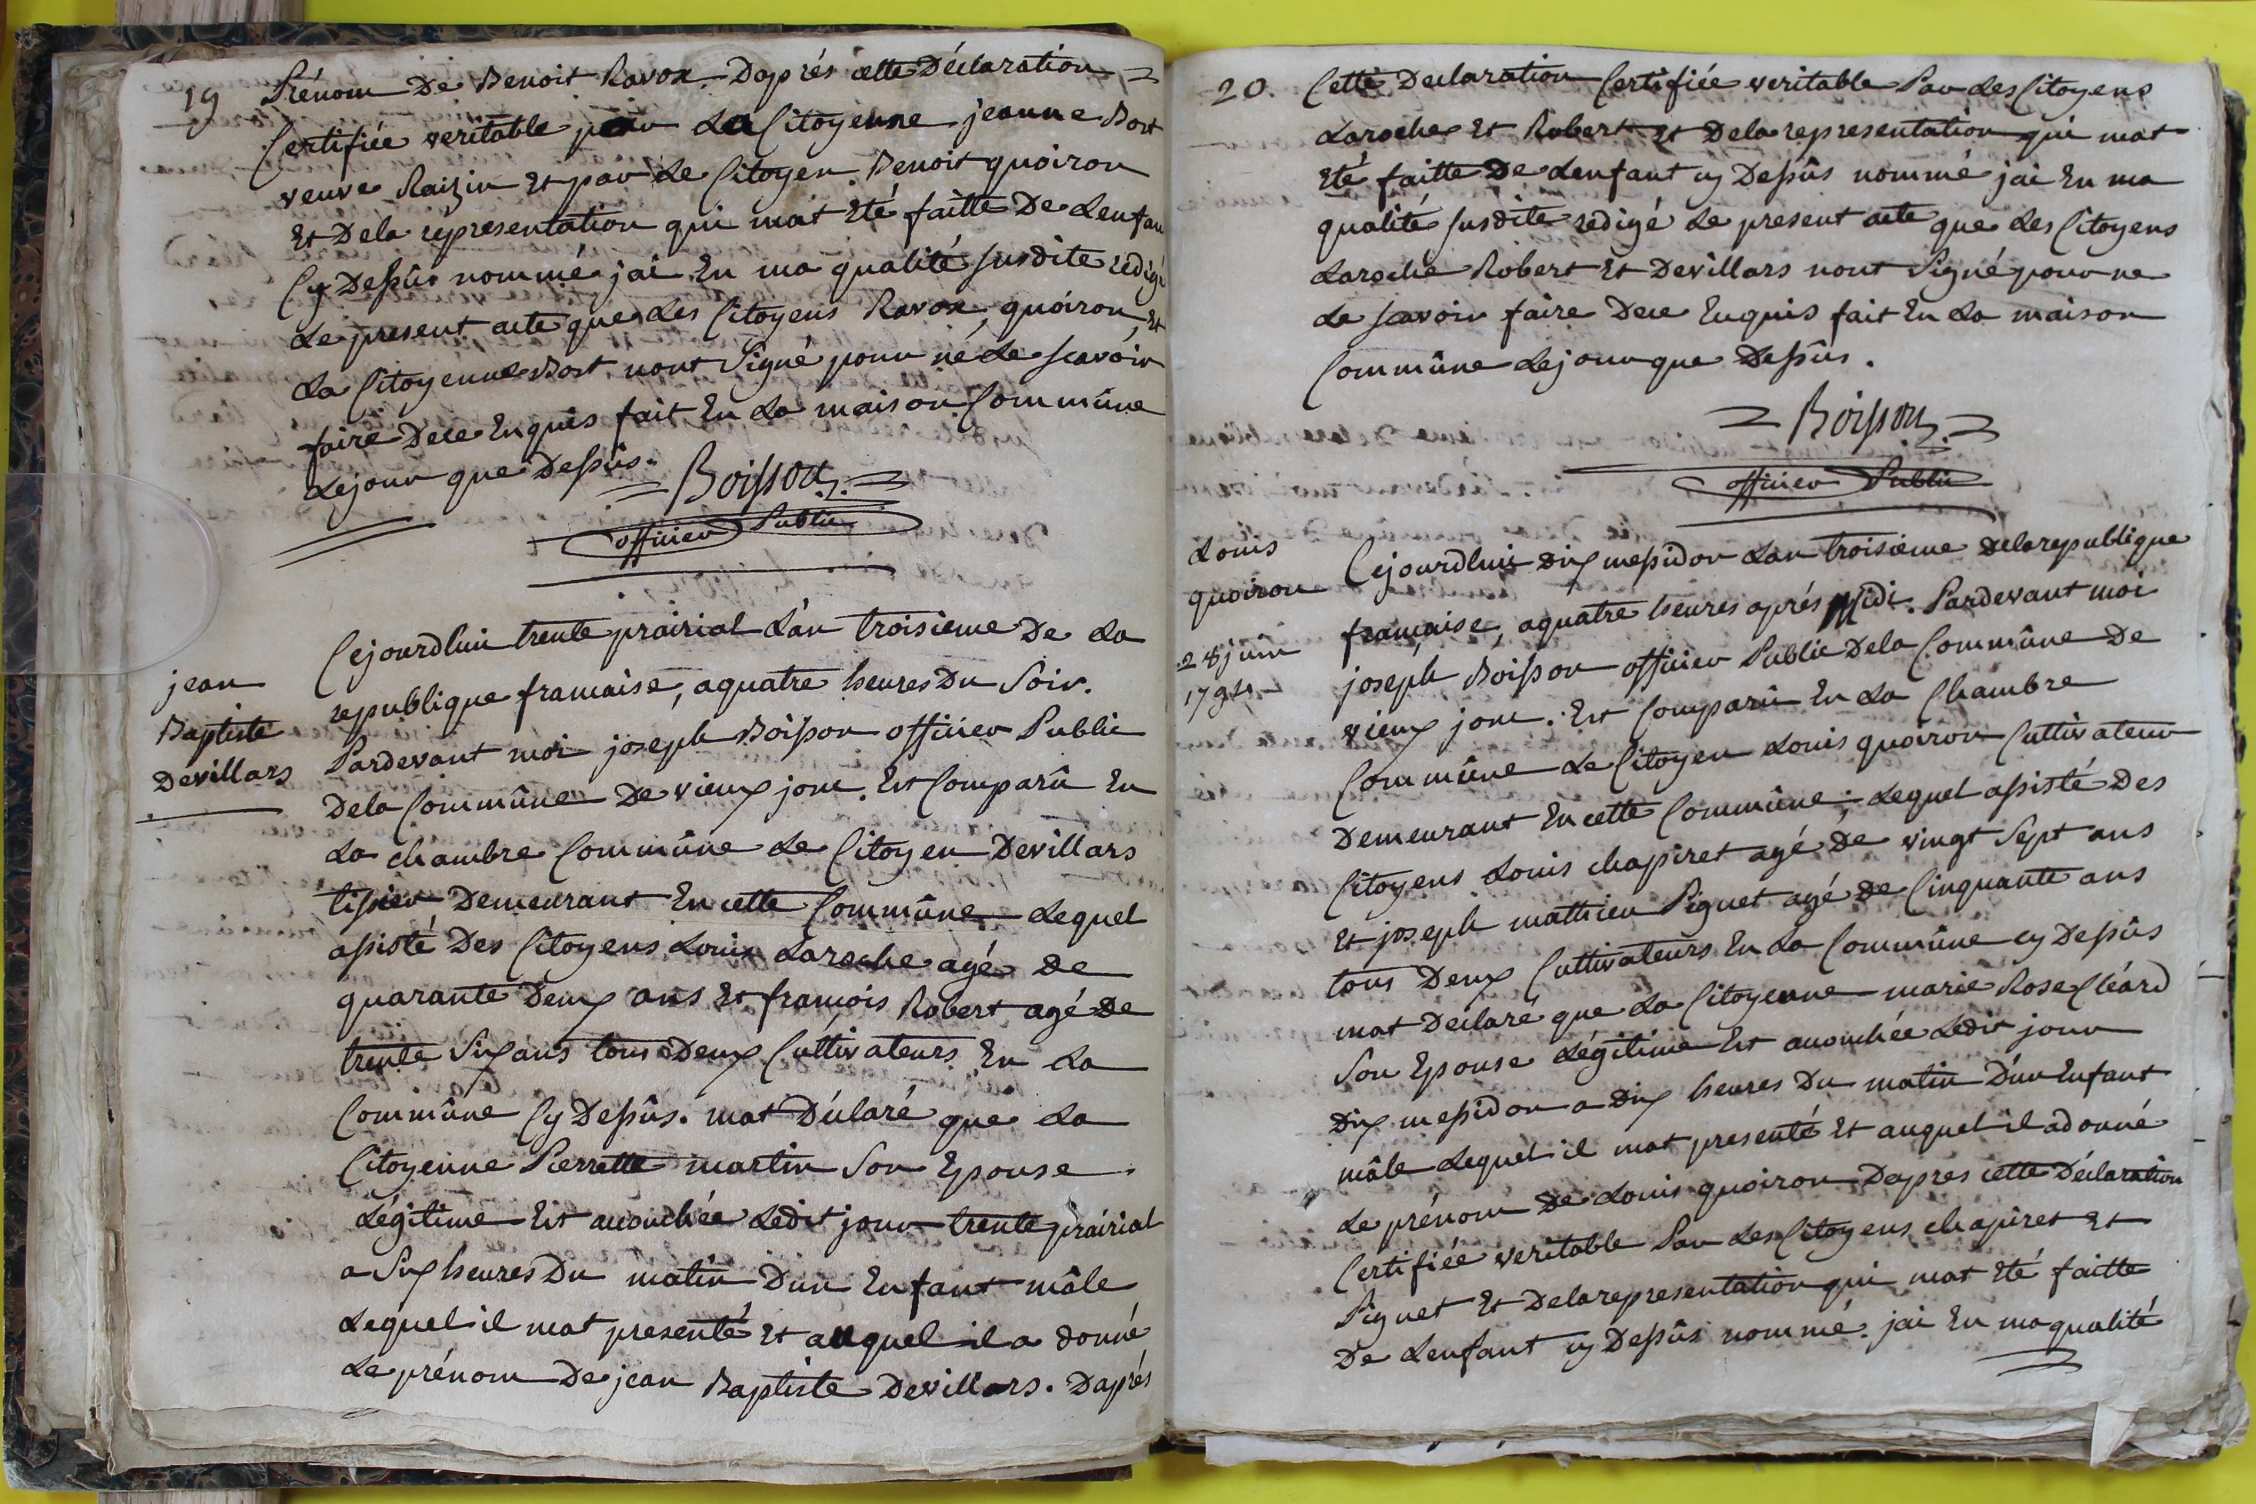 19
Prénom De Benoit Ravox. Daprés cette Déclaration
Certifiée veritable par La Citoyenne jeanne Bort
veuve Raizin Et par Le Citoyen Benoit quoiron
Et Dela réprésentation qui mat Eté faitte De Lenfan
Cy Deßûs nommé jai En ma qualité susdite redigé
Le present acte que Les Citoyens Ravox, quoiron, Et
La Citoyenne Bort nont Signé pour né Le scavoir
faire Dece Enquis fait En La maison Commûne
Lejour que Deßûs.
Boisson
officier Public
jean
Baptiste
Devillars
Cejourdhui trente prairial L'an troisieme De La
republique francaise, aquatre heures Du Soir.
Pardevant moi joseph Boißon officier Public
Dela Commûne De vieux jonc. Est Comparû En
La chambre Commûne Le Citoyen Devillars
tißier Demeurant En cette Commûne Lequel
aßisté Des Citoyens Louis Laroche agé De
quarante Deux ans Et francois Robert agé De
trente Six ans tous Deux Cultivateurs En La
Commûne Cy Deßûs. mat Déclaré que La
Citoyenne Pierrette martin Son Epouse
Légitime Est accouchée Ledit jour trente prairial
a Six heures Du matin Dun Enfant mâle
Lequel il mat presenté Et auquel il a donné
Le prénom De jean Baptiste Devillars. Daprés
20.
Cette Declaration Certifiée veritable Par Les Citoyens
Laroche Et Robert Et Dela representation qui mat
Eté faitte De Lenfant cy Deßûs nommé jai En ma
qualité susdite redigé Le present acte que Les Citoyens
Laroche Robert Et Devillars nont Signé pour ne
Le scavoir faire Dece Enquis fait En La maison
Commûne Lejour que Deßûs.
Boisson
officier Public
Louis
quoiron
28 juin
1794
Cejourdhui Dix meßidor Lan troisieme Delarepublique
francaise, aquatre heures aprés Midi. Pardevant moi
joseph Boißon officier Public Dela Commûne De
vieux jonc. Est Comparû En La Chambre
Commûne Le Citoyen Louis quoiron Cultivateur
Demeurant En cette Commûne; Lequel aßisté Des
Citoyens Louis chapiret agé De vingt Sept ans
Et joseph mathieu Piguet agé De Cinquante ans
tous Deux Cultivateurs En La Commûne cy Deßûs
mat Déclaré que La Citoyenne marie Rose Cléard
Son Epouse Légitime Est accouchée Ledit jour
Dix meßidor a Dix heures Du matin D'un Enfant
mâle Lequel il mat presenté Et auquel il adonné
Le prénom De Louis quoiron Dapres cette Déclaration
Certifiée veritable Par Les Citoyens chapiret Et
Piguet Et Delarepresentation qui mat Eté faitte
De Lenfant cy Deßûs nommé. jai En maqualité